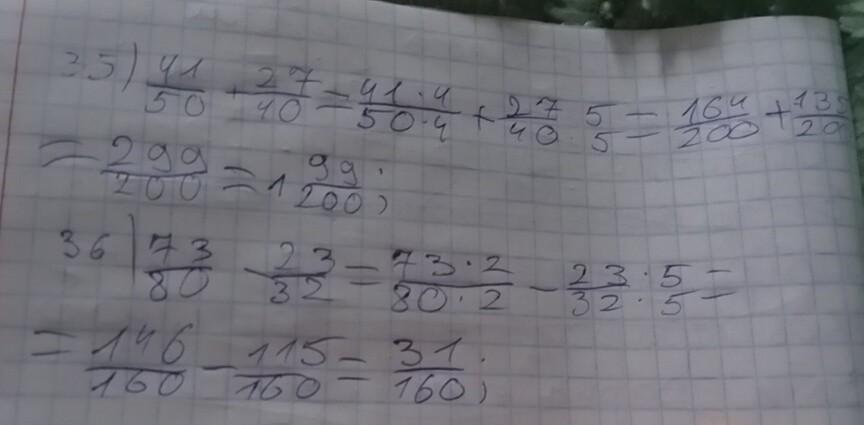 35) 41/50 + 27/40 = 41·4/50·4 + 27·5/40·5 = 164/200 + 135/20
= 299/200 = 1 99/200;
36) 73/80 - 23/32 = 73·2/80·2 - 23·5/32·5 =
= 146/160 - 115/160 = 31/160;